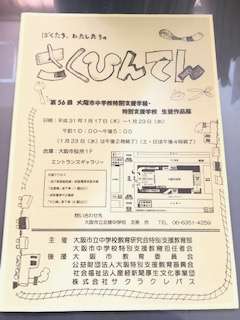 ぼくたち、わたしたちの
さくひんてん
第56回 大阪市中学校特別支援学級・
特別支援学校 生徒作品展
日時:平成31年1月17日(木)~1月23日(水)
午前10:00~午後5:00
(1月23日(水)は午後2時終了)(土・日は午後4時終了)
会場:大阪市役所1F
エントランスギャラリー
問い合わせ先
06-6351-4259
主催 大阪市立中学校教育研究会特別支援教育部
大阪市中学校特別支援教育担任者会
後援 大阪市教育委員会
公益財団法人大阪特別支援教育振興会
社会福祉法人産経新聞厚生文化事業団
株式会社サクラクレパス